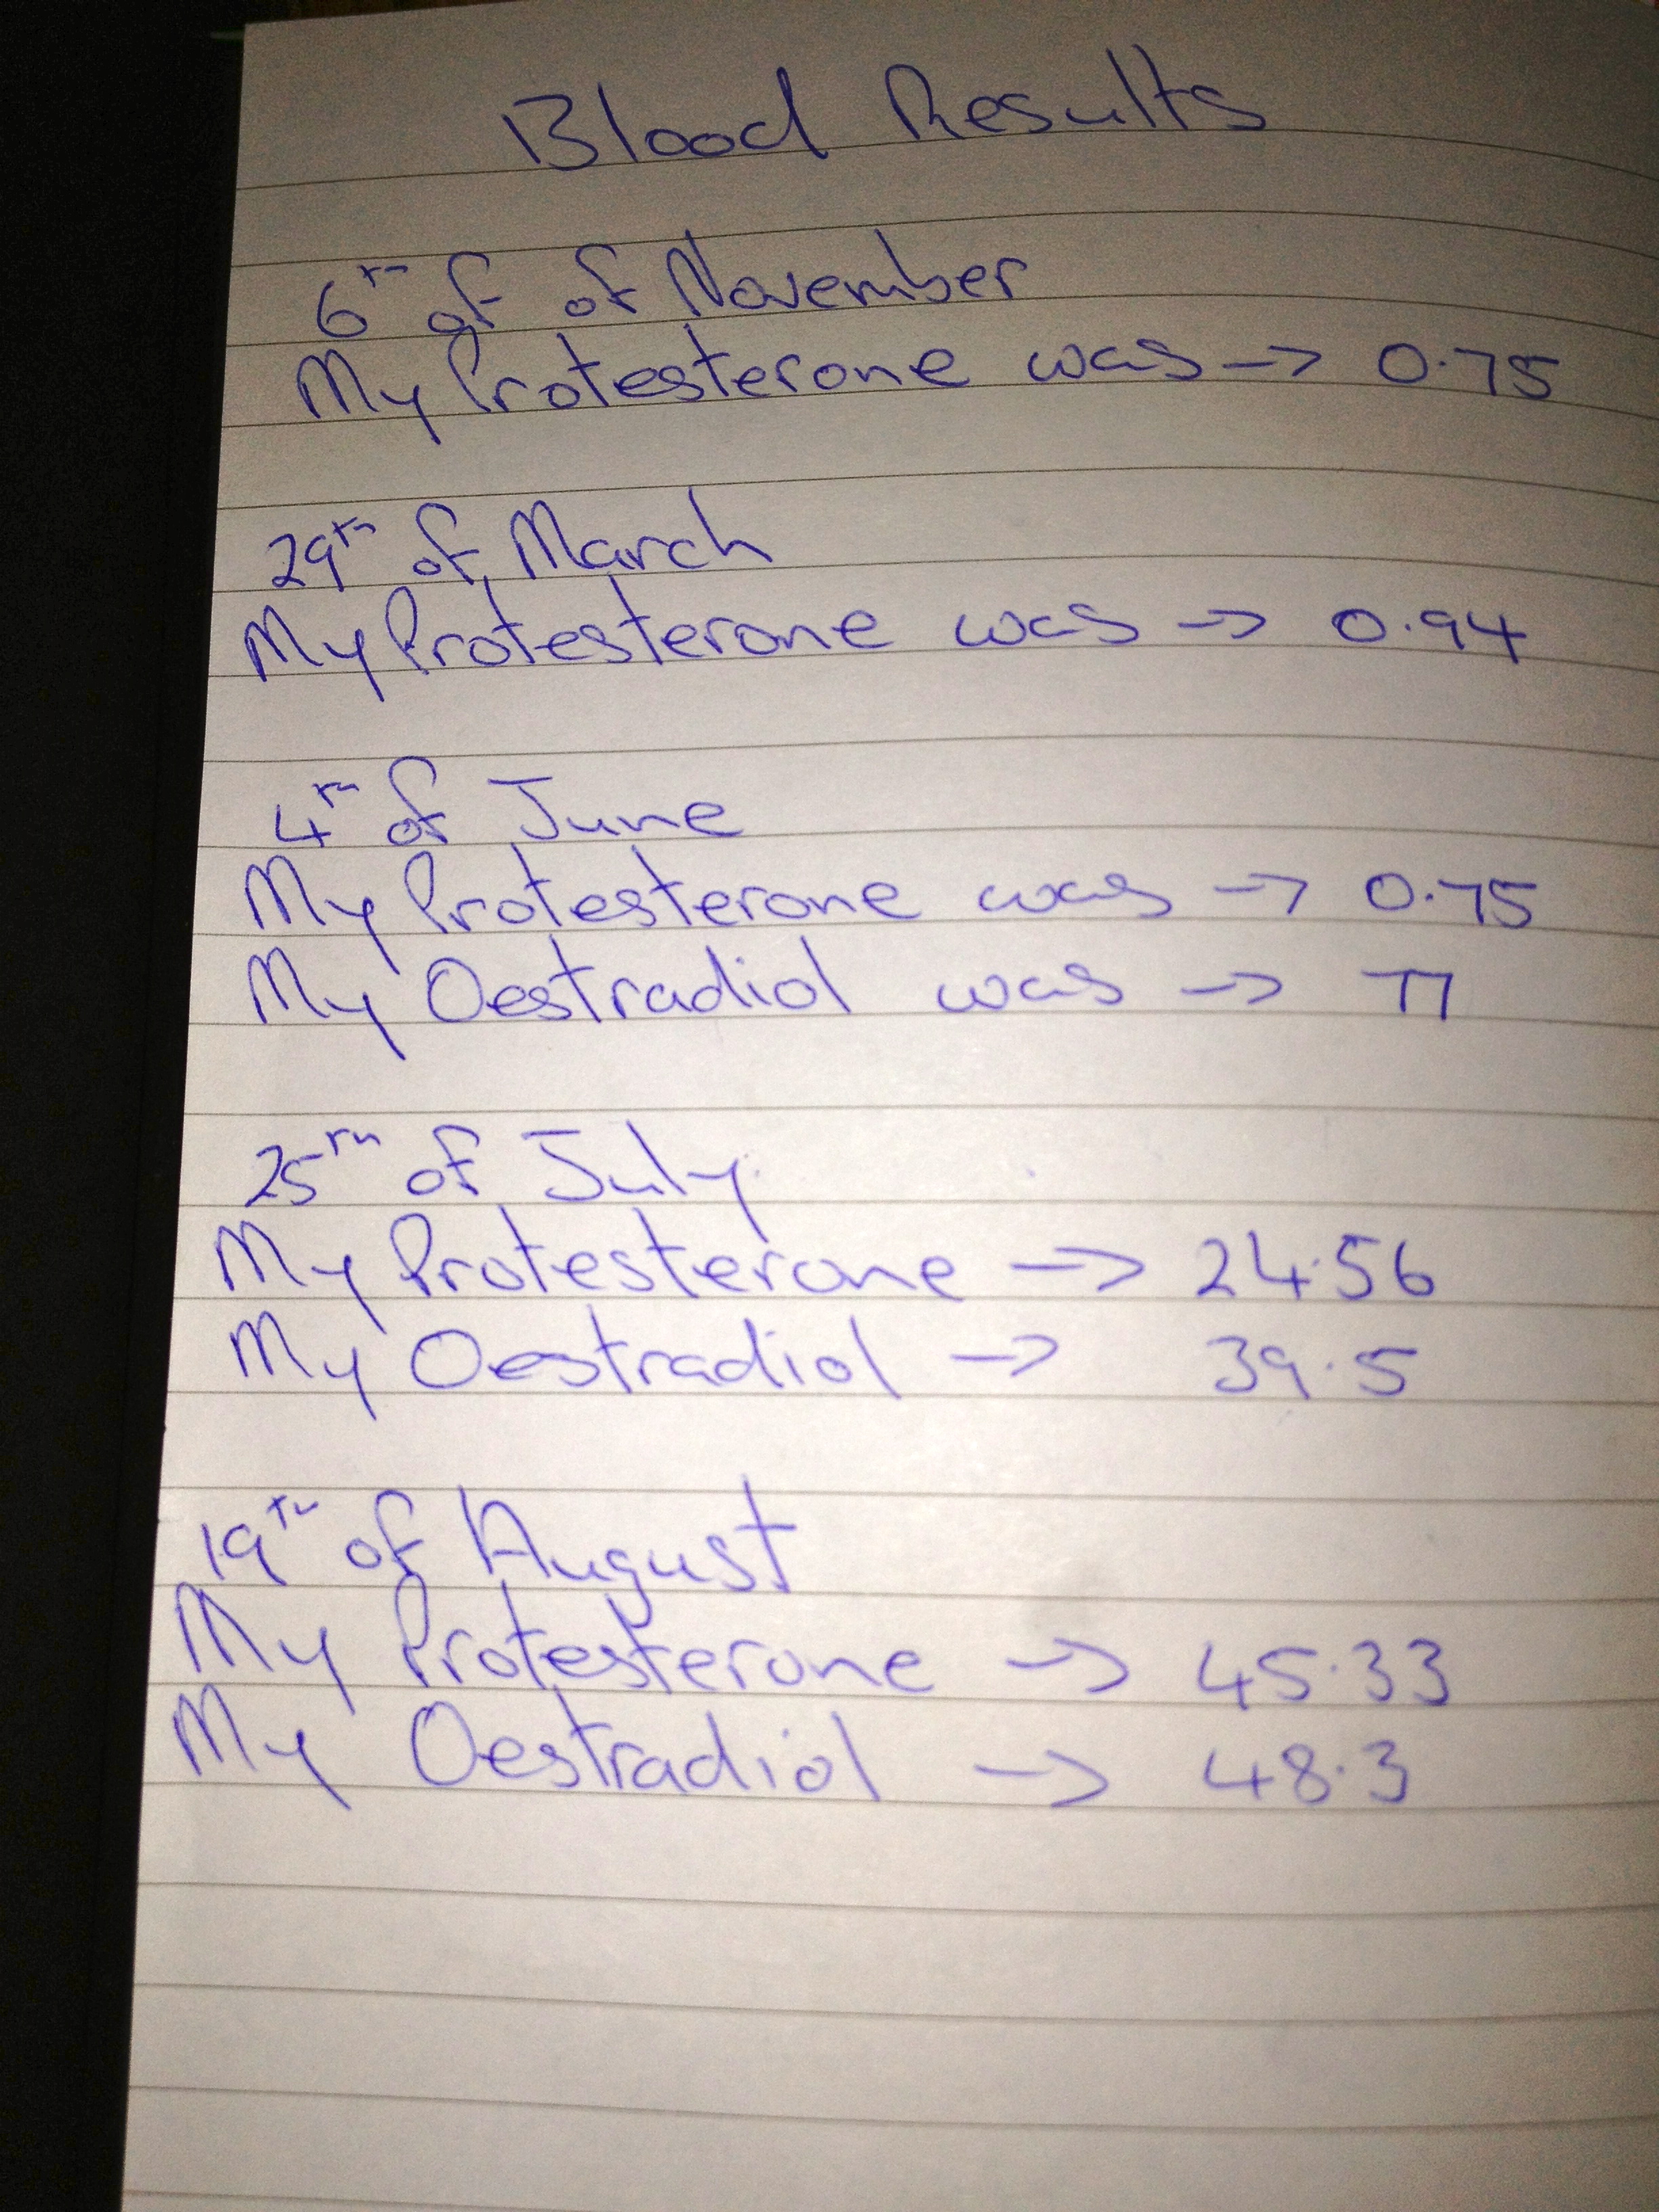 Blood Results
6th of of November
My Protesterone was -> 0.75
29th of March
My Protesterone was -> 0.94
4th of June
My Protesterone was -> 0.75
My Oestradiol was -> 77
25th of July
My Protesterone -> 24.56
My Oestradiol -> 39.5
19th of August
My Protesterone -> 45.33
My Oestradiol -> 48.3